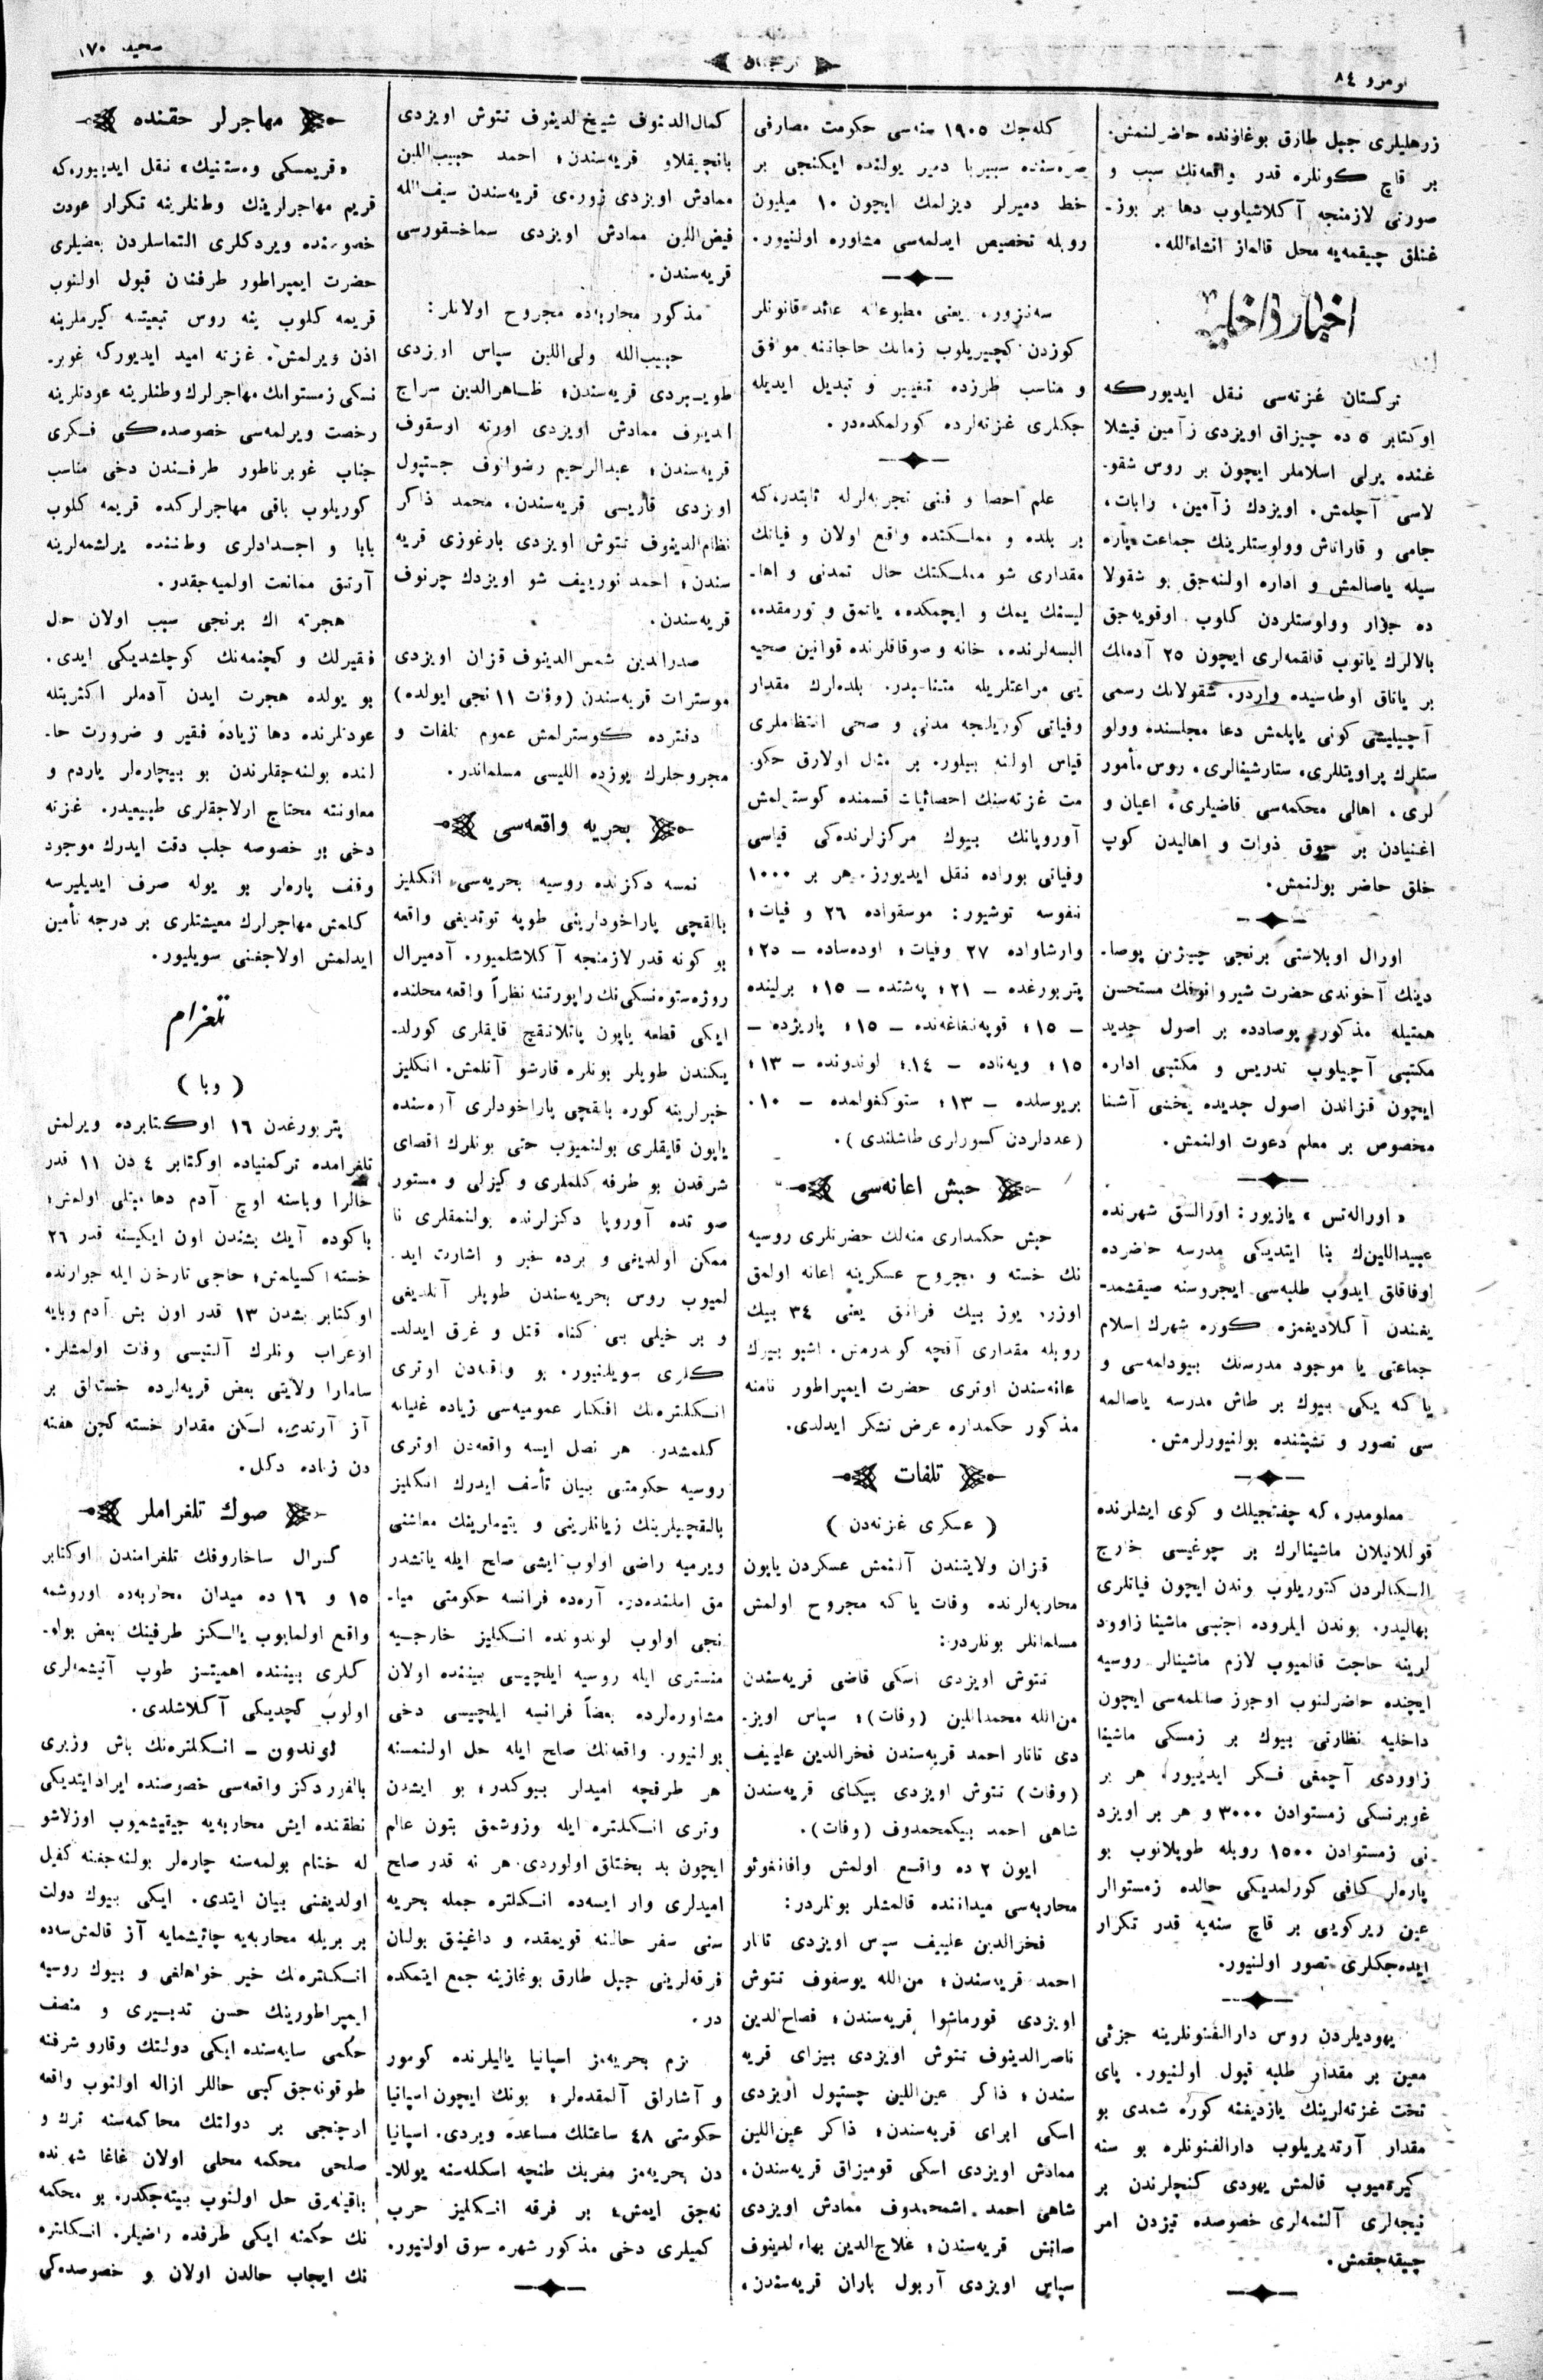 نومرو ٨٤
ترجمان
صحیفه ١٧٠
زرهلیلری جبل طارق بوغازنده حاضرلنمش.
بر قاچ كونلره قدر واقعه‌نك سبب و
صورتی لازمنجه آكلاشیلوب دها بر بوز-
غنلق چیقمه‌یه محل قالماز انشاءالله.
اخبار داخلیه
تركستان غزته‌سی نقل ایدیوركه
اوكتابر ٥ ده جیزاق اویزدی زآمین قیشلا
غنده یرلی اسلاملر ایچون بر روس شقو-
لاسی آچلمش. اویزدك زآمین، رابات،
جامی و قاراتاش وولوستلرینك جماعت پاره
سیله یاصالمش و اداره اولنه‌جق بو شقولا
ده جوار وولوستلردن كلوب اوقویه‌جق
بالالرك یاتوب قالقمه‌لری ایچون ٢٥ آدملك
بر یاتاق اوطه‌سیده واردر. شقولانك رسمی
آچیلیشی كونی یاپلمش دعا مجلسنده وولو
ستلرك پراویتللری، ستارشینالری، روس مأمور
لری، اهالی محكمه‌سی قاضیلری، اعیان و
اغنیادن بر چوق ذوات و اهالیدن كوپ
خلق حاضر بولنمش.
اورال اوبلاستی برنجی چیژن بوصا-
دینك آخوندی حضرت شیروانوفك مستحسن
همتیله مذكور پوصادده بر اصول جدید
مكتبی آچیلوب تدریس و مكتبی اداره
ایچون قزاندن اصول جدیده یخشی آشنا
مخصوص بر معلم دعوت اولنمش.
« اوراله‌تس » یازیور: اورالسق شهرنده
عبیداللین‌ك بنا ایتدیكی مدرسه حاضرده
اوفاقلق ایدوب طلبه‌سی ایچروسنه صیقشمد-
یغندن آكلادیغمزه كوره شهرك اسلام
جماعتی یا موجود مدرسنك بیودلمه‌سی و
یاكه یكی بیوك بر طاش مدرسه یاصالمه
سی تصور و تشبثنده بولنیورلرمش.
معلومدر، كه چفتجیلك و كوی ایشلرنده
قوللانیلان ماشینالرك بر چوغیسی خارج
الكه‌لردن كتوریلوب بوندن ایچون فیاتلری
بهالیدر. بوندن ایلروده اجنبی ماشینا زاوود
لرینه حاجت قالمیوب لازم ماشینالر روسیه
ایچنده حاضرلنوب اوجوز صاتلمه‌سی ایچون
داخلیه نظارتی بیوك بر زمسكی ماشینا
زاوودی آچمغی فكر ایدیور. هر بر
غوبرنسكی زمستوادن ٣٠٠٠ و هر بر اویزد
نی زمستوادن ١٥٠٠ روبله طوپلانوب بو
پاره‌لر كافی كورلمدیكی حالده زمستوالر
عین ویركویی بر قاچ سنه‌یه قدر تكرار
ایده‌جكلری تصور اولنیور.
یهودیلردن روس دارالفنونلرینه جزئی
معین بر مقدار طلبه قبول اولنیور. پای
تخت غزته‌لرینك یازدیغنه كوره شمدی بو
مقدار آرتدیریلوب دارالفنونلره بو سنه
كیره‌میوب قالمش یهودی كنجلرندن بر
نیجه‌لری آلنمه‌لری خصوصده تیزدن امر
چیقه‌جقمش.
كله‌جك ١٩٠٥ سنه‌سی حكومت مصارفی
صره‌سنده سبیریا دمیر یولنده ایكنجی بر
خط دمیرلر دیزلمك ایچون ١٠ میلیون
روبله تخصیص ایدلمه‌سی مشاوره اولنیور.
سه‌نزور، یعنی مطبوعاته عائد قانونلر
كوزدن كچیریلوب زمانك حاجاتنه موافق
و مناسب طرزده تغییر و تبدیل ایدیله
جكلری غزته‌لرده كورلمكده‌در.
علم احصا و فنی تجربه‌لرله ثابتدر، كه
بر بلده و مملكتده واقع اولان وفیاتك
مقداری شو مملكتك حال تمدنی و اها-
لیسنك یمك و ایچمكده، یاتمق و تورمقده،
البسه‌لرنده، خانه و صوقاقلرنده قوانین صحیه
یی مراعتلریله متناسبدر. بلده‌لرك مقدار
وفیاتی كوریلنجه مدنی و صحی انتظاملری
قیاس اولنه بیلور. بر مثال اولارق حكو-
مت غزته‌سنك احصائیات قسمنده كوسترلمش
آوروپانك بیوك مركزلرنده‌كی قیاسی
وفیاتی بوراده نقل ایدیورز. هر بر ١٠٠٠
نفوسه توشیور: موسقواده ٢٦ وفیات؛
وارشاواده ٢٧ وفیات؛ اوده‌ساده — ٢٥؛
پتربورغده — ٢١؛ پشتده — ١٥؛ برلینده
— ١٥؛ قوپه‌نغاغه‌نده — ١٥؛ پاریژده —
١٥؛ ویه‌ناده — ١٤؛ لوندونده — ١٣؛
بریوسلده — ١٣؛ ستوكغولمده — ١٠.
(عددلردن كسورلری طاشلندی).
حبش اعانه‌سی
حبش حكمداری منه‌لك حضرتلری روسیه
نك خسته و مجروح عسكرینه اعانه اولمق
اوزره یوز بیك فرانق یعنی ٣٤ بیك
روبله مقداری آقچه كوندرمش. اشبو بیوك
عانه‌سندن اوتری حضرت ایمپراطور نامنه
مذكور حكمداره عرض تشكر ایدلدی.
تلفات
( عسكری غزته‌دن )
قزان ولایتندن آلنمش عسكردن یاپون
محاربه‌لرنده وفات یاكه مجروح اولمش
مسلمانلر بونلردر:
تتوش اویزدی اسكی قاضی قریه‌سندن
من‌الله محمداللین (وفات)؛ سپاس اویز-
دی تاتار احمد قریه‌سندن فخرالدین علییف
(وفات) تتوش اویزدی بیكای قریه‌سندن
شاهی احمد بیكمحمدوف (وفات).
ایون ٢ ده واقع اولمش وافانغوئو
محاربه‌سی میداننده قالمشلر بونلردر:
فخرالدین علییف سپاس اویزدی تاتار
احمد قریه‌سندن؛ من‌الله یوسفوف تتوش
اویزدی قورماشوا قریه‌سندن؛ فصاح‌الدین
ناصرالدینوف تتوش اویزدی بیزای قریه
سندن؛ ذاكر عین‌اللین چستپول اویزدی
اسكی ابرای قریه‌سندن؛ ذاكر عین‌اللین
ممادش اویزدی اسكی قومیزاق قریه‌سندن،
شاهی احمد اشمحمدوف ممادش اویزدی
صانش قریه‌سندن؛ علاج‌الدین بهاءالدینوف
سپاس اویزدی آربول باران قریه‌سندن،
كمال‌الدینوف شیخ‌الدینوف تتوش اویزدی
بانچیقلاو قریه‌سندن؛ احمد حبیب‌اللین
ممادش اویزدی زوره‌ی قریه‌سندن سیف‌الله
فیض‌اللین ممادش اویزدی سماخسقورسی
قریه‌سندن.
مذكور محاربه‌ده مجروح اولانلر:
حبیب‌الله ولی‌اللین سپاس اویزدی
طویـبردی قریه‌سندن؛ ظاهرالدین سراج
الدینوف ممادش اویزدی اورته اوسقوف
قریه‌سندن؛ عبدالرحیم رضوانوف چستپول
اویزدی قاریسی قریه‌سندن، محمد ذاكر
نظام‌الدینوف تتوش اویزدی بارغوزی قریه
سندن؛ احمد نورییف شو اویزدك چرنوف
قریه‌سندن.
صدرالدین شمس‌الدینوف قزان اویزدی
موسترات قریه‌سندن (وفات ١١ نجی ایولده)
دفترده كوسترلمش عموم تلفات و
مجروحلرك یوزده اللیسی مسلماندر.
بحریه واقعه‌سی
نمسه دكزنده روسیه بحریه‌سی انكلیز
بالقچی پاراخودلرینی طوپه توتدیغی واقعه
بو كونه قدر لازمنجه آكلاشلمیور. آدمیرال
روژه‌ستوه‌نسكی‌نك راپورتنه نظراً واقعه محلنده
ایكی قطعه یاپون پاتلانقچ قایقلری كورلد-
یكندن طوپلر بونلره قارشو آتلمش. انكلیز
خبرلرینه كوره بالقچی پاراخودلری آره‌سنده
یاپون قایقلری بولنمیوب حتی بونلرك اقصای
شرقدن بو طرفه كلملری و كیزلی و مستور
صورتده آوروپا دكزلرنده بولنمقلری نا
ممكن اولدیغی و برده خبر و اشارت اید-
لمیوب روس بحریه‌سندن طوپلر آتلدیغی
و بر خیلی بی كناه قتل و غرق ایدلد-
كلری سویلنیور. بو واقعه‌دن اوتری
انكلتره‌نك افكار عمومیه‌سی زیاده غلیانه
كلمشدر. هر نصل ایسه واقعه‌دن اوتری
روسیه حكومتی بیان تأسف ایدرك انكلیز
بالقچیلرینك زیانلرینی و یتیملرینك معاشنی
ویرمیه راضی اولوب ایشی صلح ایله یاتشدر
مق املنده‌در. آره‌ده فرانسه حكومتی میا-
نجی اولوب لوندونده انكلیز خارجیه
منستری ایله روسیه ایلچیسی بیننده اولان
مشاوره‌لرده بعضاً فرانسه ایلچیسی دخی
بولنیور. واقعه‌نك صلح ایله حل اولنمسنه
هر طرفچه امیدلر بیوكدر؛ بو ایشدن
وتری انكلتره ایله وزوشمق بتون عالم
ایچون بد بختلق اولوردی. هر نه قدر صلح
امیدلری وار ایسه‌ده انكلتره جمله بحریه
سنی سفر حالنه قویمقده و داغینق بولنان
فرقه‌لرینی جبل طارق بوغازینه جمع ایتمكده
در.
بزم بحریه‌مز اسپانیا یالیلرنده كومور
و آشارلق آلمقده‌لر؛ بونك ایچون اسپانیا
حكومتی ٤٨ ساعتلك مساعده ویردی. اسپانیا
دن بحریه‌مز مغربك طنچه اسكله‌سنه یوللا-
نه‌جق ایمش؛ بر فرقه انكلیز حرب
كمیلری دخی مذكور شهره سوق اولنیور.
مهاجرلر حقنده
«قریمسكی وه‌ستنیك» نقل ایدیوركه
قریم مهاجرلرینك وطنلرینه تكرار عودت
خصوصنده ویردكلری التماسلردن بعضیلری
حضرت ایمپراطور طرفندن قبول اولنوب
قریمه كلوب ینه روس تبعیتنه كیرملرینه
اذن ویرلمش. غزته امید ایدیوركه غوبر-
نسكی زمستوانك مهاجرلرك وطنلرینه عودتلرینه
رخصت ویرلمه‌سی خصوصده‌كی فكری
جناب غوبرناطور طرفندن دخی مناسب
كوریلوب باقی مهاجرلركده قریمه كلوب
بابا و اجدادلری وطننده یرلشمه‌لرینه
آرتق ممانعت اولمیه‌جقدر.
هجرته اك برنجی سبب اولان حال
فقیرلك و كچنمه‌نك كوچلشدیكی ایدی.
بو یولده هجرت ایدن آدملر اكثریتله
عودتلرنده دها زیاده فقیر و ضرورت حا-
لنده بولنه‌جقلرندن بو بیچاره‌لر یاردم و
معاونته محتاج اولاجقلری طبیعیدر. غزته
دخی بو خصوصه جلب دقت ایدرك موجود
وقف پاره‌لر بو یوله صرف ایدیلیرسه
كلمش مهاجرلرك معیشتلری بر درجه تأمین
ایدلمش اولاجغنی سویلیور.
تلغرام
( وبا )
پتربورغدن ١٦ اوكتابرده ویرلمش
تلغرامده تركمنیاده اوكتابر ٤ دن ١١ قدر
خالرا وباسنه اوچ آدم دها مبتلی اولمش؛
باكوده آیك بشندن اون ایكیسنه قدر ٢٦
خسته اكسیلمش؛ حاجی تارخان ایله جوارنده
اوكتابر بشدن ١٣ قدر اون بش آدم وبایه
اوغراب بونلرك آلتیسی وفات اولمشلر.
سامارا ولایتی بعض قریه‌لرده خسته‌لق بر
آز آرتدی، لكن مقدار خسته كچن هفته
دن زیاده دكل.
صوك تلغراملر
كنرال ساخاروفك تلغرامندن اوكتابر
١٥ و ١٦ ده میدان محاربه‌ده اوروشمه
واقع اولمایوب یالكز طرفینك بعض بولو-
كلری بیننده اهمیتسز طوپ آتیشمالری
اولوب كچدیكی آكلاشلدی.
لوندون — انكلتره‌نك باش وزیری
بالفور دكز واقعه‌سی خصوصنده ایراد ایتدیكی
نطقنده ایش محاربه‌یه چیقیشمیوب اوزلاشو
له ختام بولمه‌سنه چاره‌لر بولنه‌جغنه كفیل
اولدیغنی بیان ایتدی. ایكی بیوك دولت
بر بریله محاربه‌یه چاتیشمایه آز قالمش‌سه‌ده
انكلتره‌نك خیر خواهلغی و بیوك روسیه
ایمپراطورینك حسن تدبیری و منصف
حكمی سایه‌سنده ایكی دولتك وقار و شرفنه
طوقونه‌جق كبی حاللر ازاله اولنوب واقعه
اوچنجی بر دولتك محاكمه‌سنه ترك و
صلحی محكمه محلی اولان غاغا شهرنده
باقیله‌رق حل اولنوب بیته‌جكدر. بو محكمه
نك حكمنه ایكی طرفده راضیلر. انكلتره
نك ایجاب حالدن اولان و خصوصده‌كی